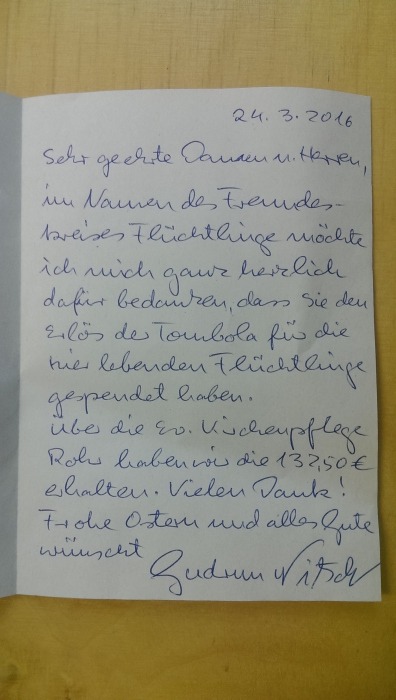 24. 3. 2016
Sehr geehrte Damen u. Herren,
im Namen des Freundes-
kreises Flüchtlinge möchte
ich mich ganz herzlich
dafür bedanken, dass Sie den
Erlös der Tombola für die
hier lebenden Flüchtlinge
gespendet haben.
Über die Ev. Kirchenpflege
Rohr haben wir die 132,50 €
erhalten. Vielen Dank!
Frohe Ostern und alles Gute
wünscht
Gudrun Nitsch